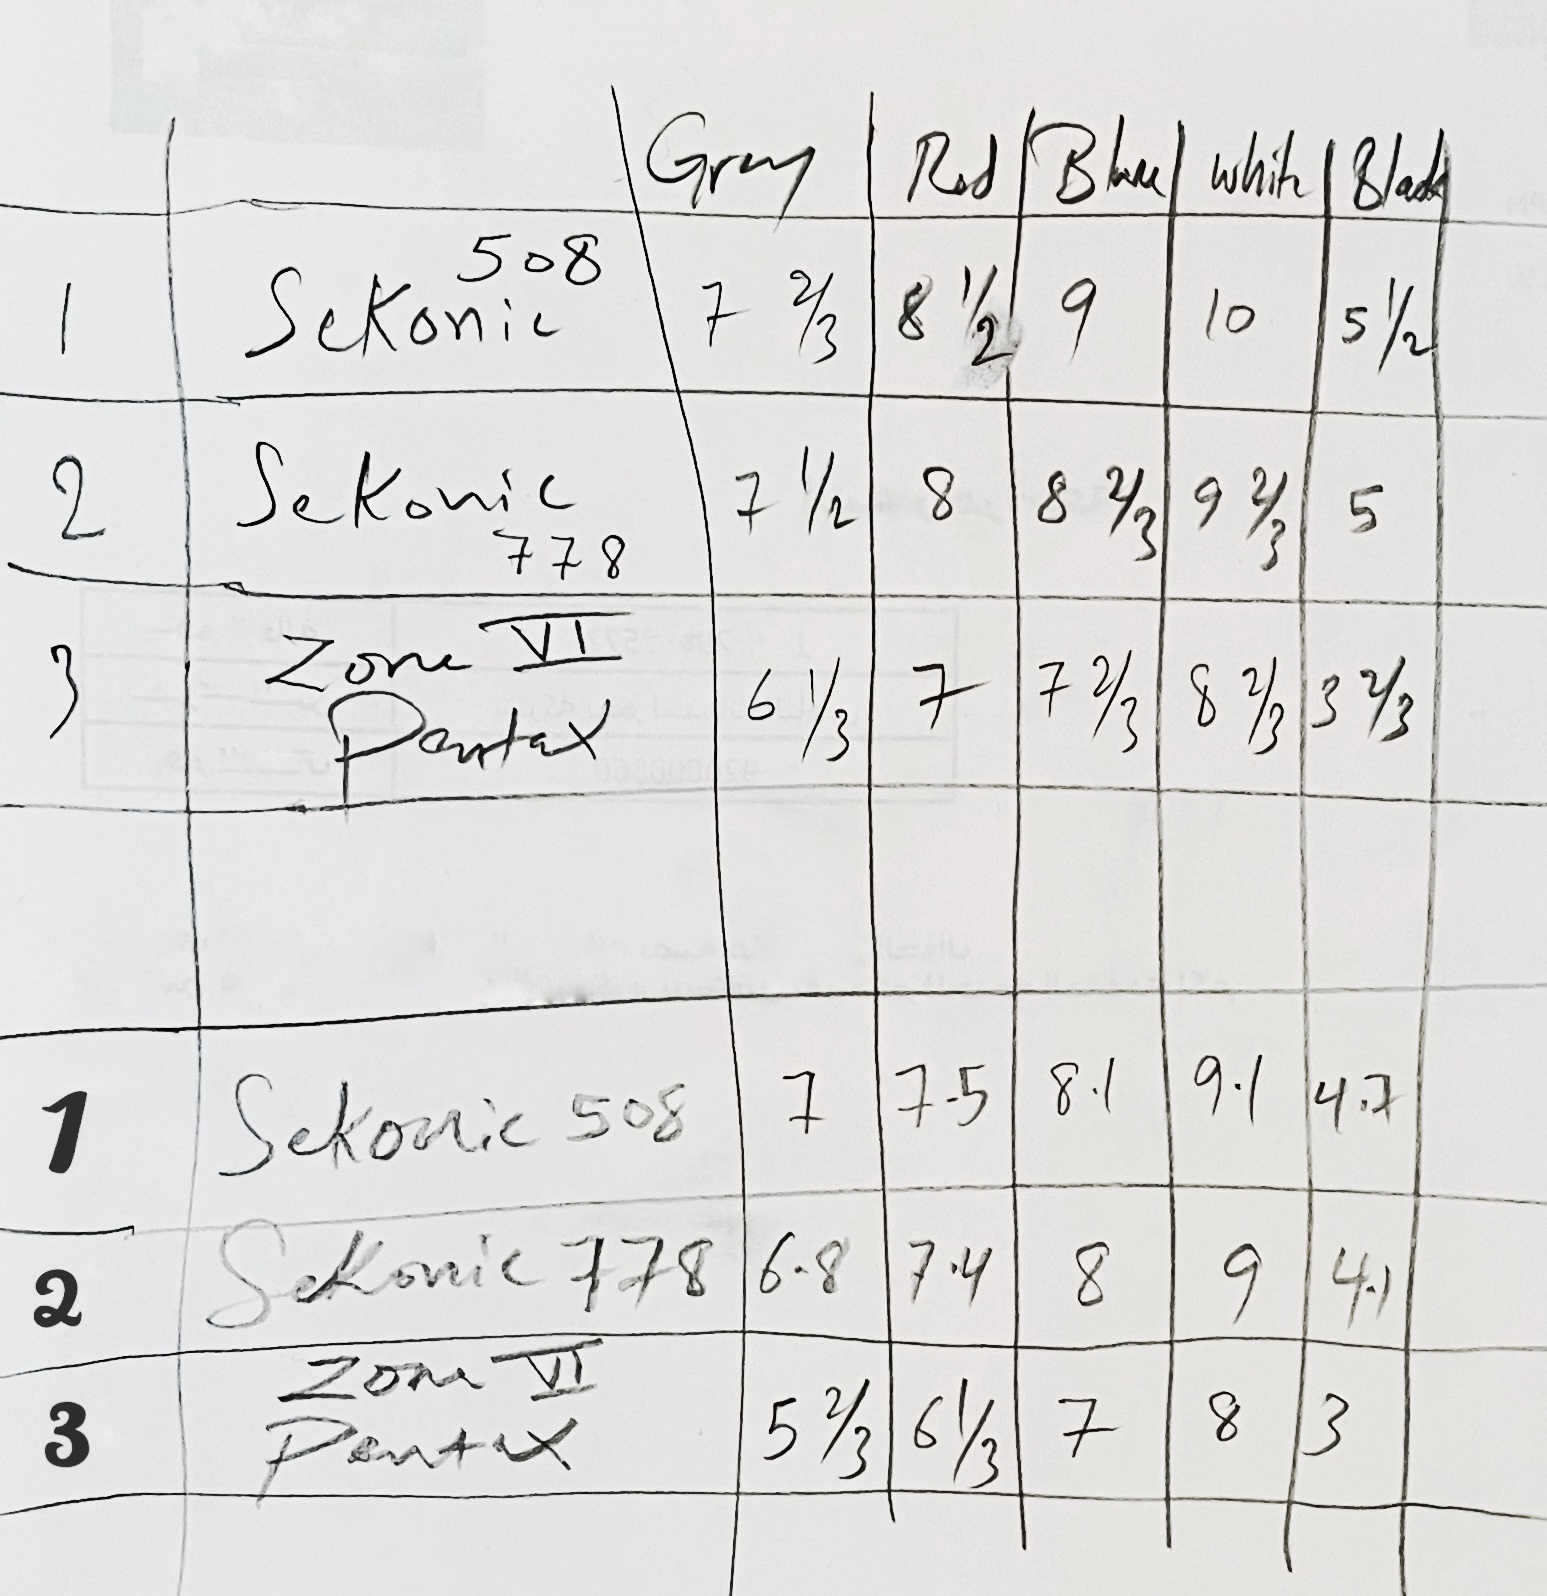 Gray Red Blue White Black
1 Sekonic 508 7 2/3 8 1/2 9 10 5 1/2
2 Sekonic 778 7 1/2 8 8 2/3 9 2/3 5
3 Zone VI Pentax 6 1/3 7 7 2/3 8 2/3 3 2/3
1 Sekonic 508 7 7.5 8.1 9.1 4.7
2 Sekonic 778 6.8 7.4 8 9 4.1
3 Zone VI Pentax 5 2/3 6 1/3 7 8 3